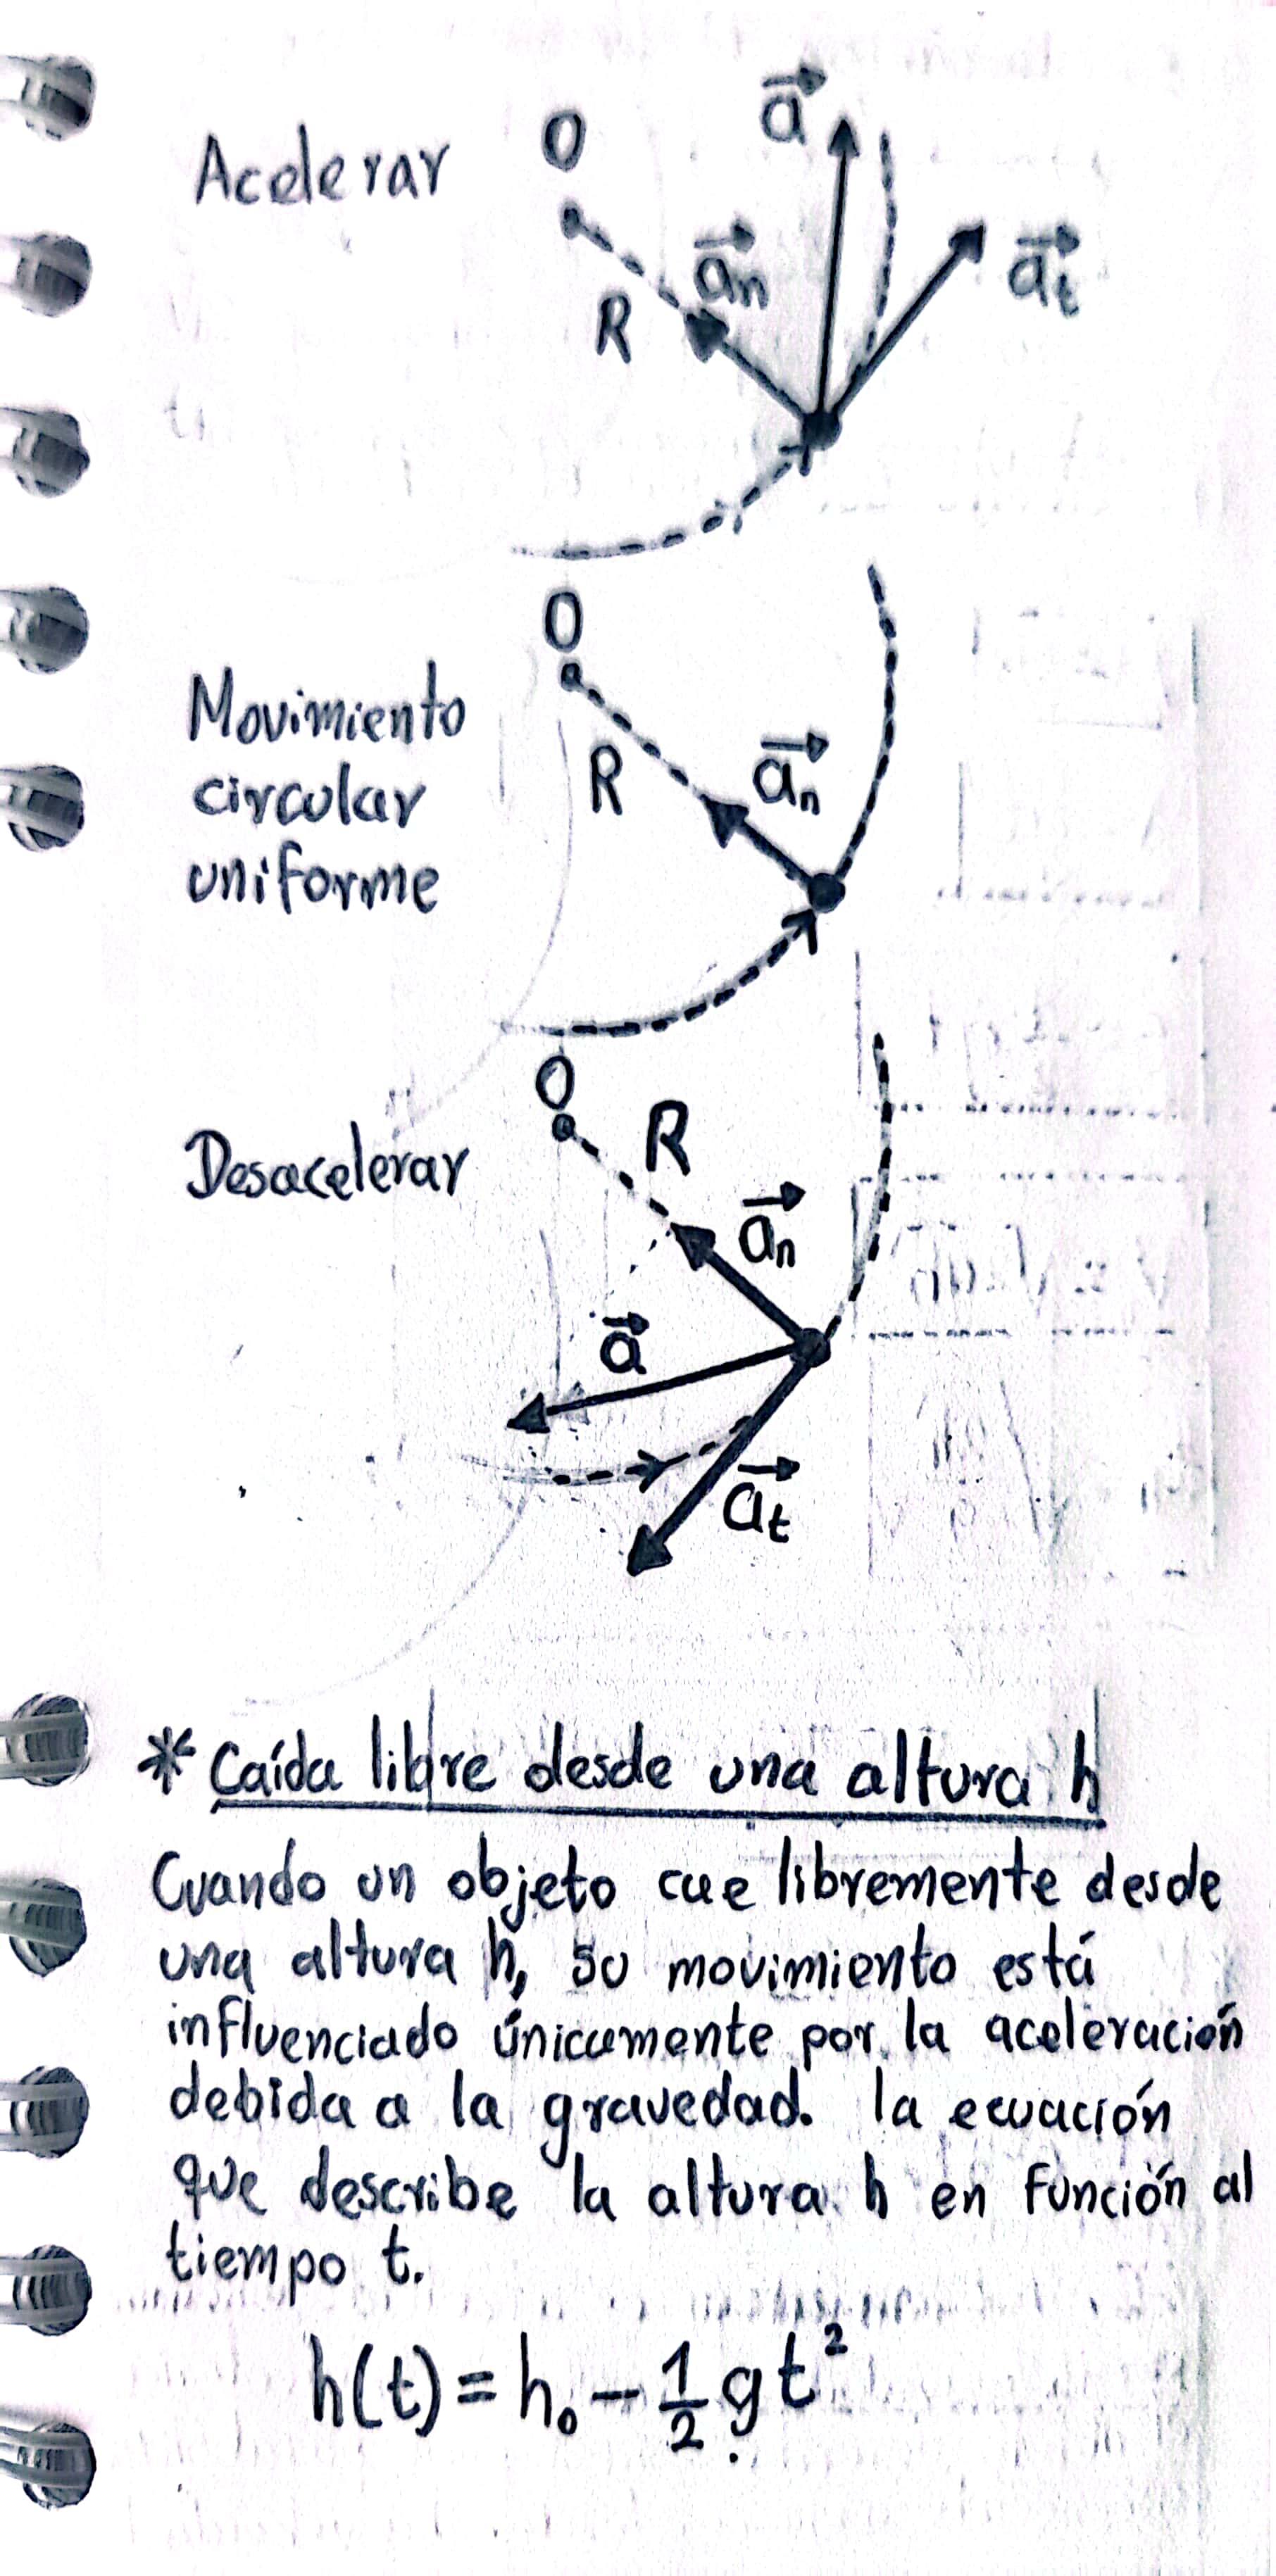 Acelerar
O
a⃗
a⃗n
a⃗t
R
O
Movimiento
circular
uniforme
R
a⃗n
O
Desacelerar
R
a⃗n
a⃗
a⃗t
* Caída libre desde una altura h
Cuando un objeto cae libremente desde
una altura h, su movimiento está
influenciado únicamente por la aceleración
debida a la gravedad. la ecuación
que describe la altura h en función al
tiempo t.
h(t) = h₀ - 1/2 g t²